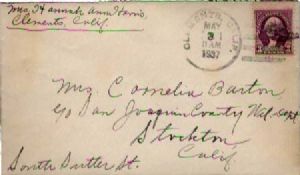 Mrs. Hannah Ann Harris.
Clements, Calif.
CLEMENTS, CALIF.
MAY
3
AM
1937
Mrs. Cornelia Barton
c/o San Joaquin County Wel. Dept
Stockton
Calif.
South Sutter St.